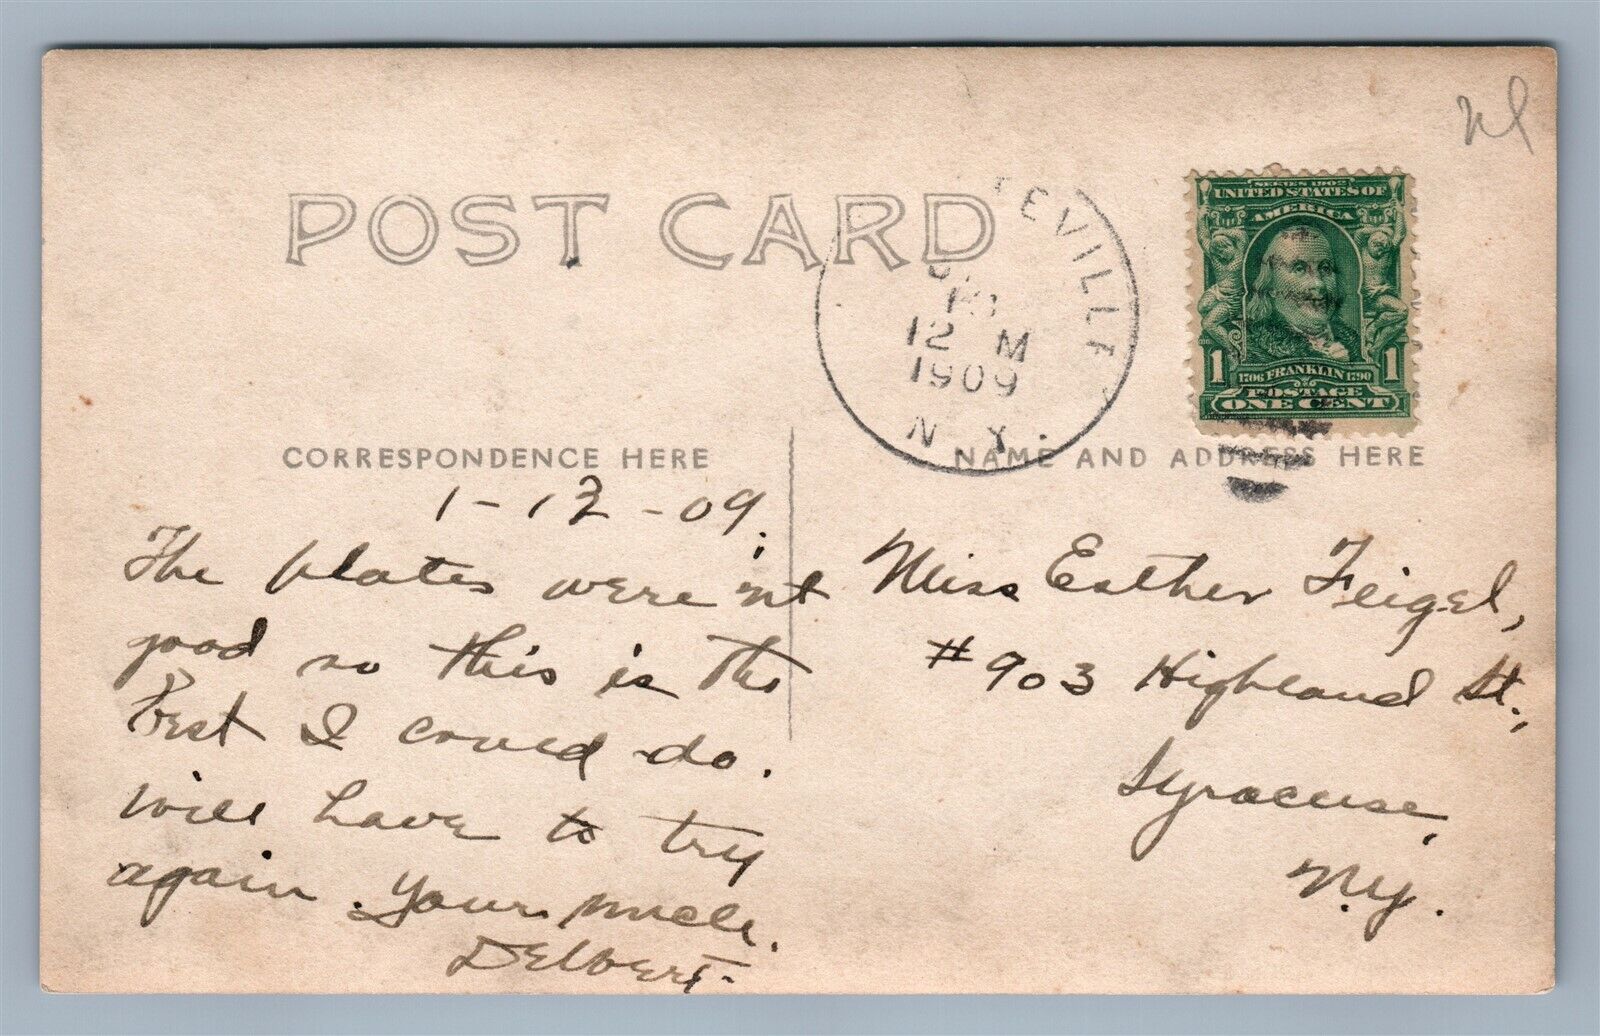 POST CARD
TEVILLE
12 M
1909
N.Y.
SERIES 1902
UNITED STATES OF
AMERICA
1 1706 FRANKLIN 1790 1
POSTAGE
ONE CENT
CORRESPONDENCE HERE
NAME AND ADDRESS HERE
1-12-09.
The plates were n't
good so this is the
best I could do.
Will have to try
again. Your uncle.
Delbert.
Miss Esther Feigel,
#903 Highland St.,
Syracuse,
N.Y.